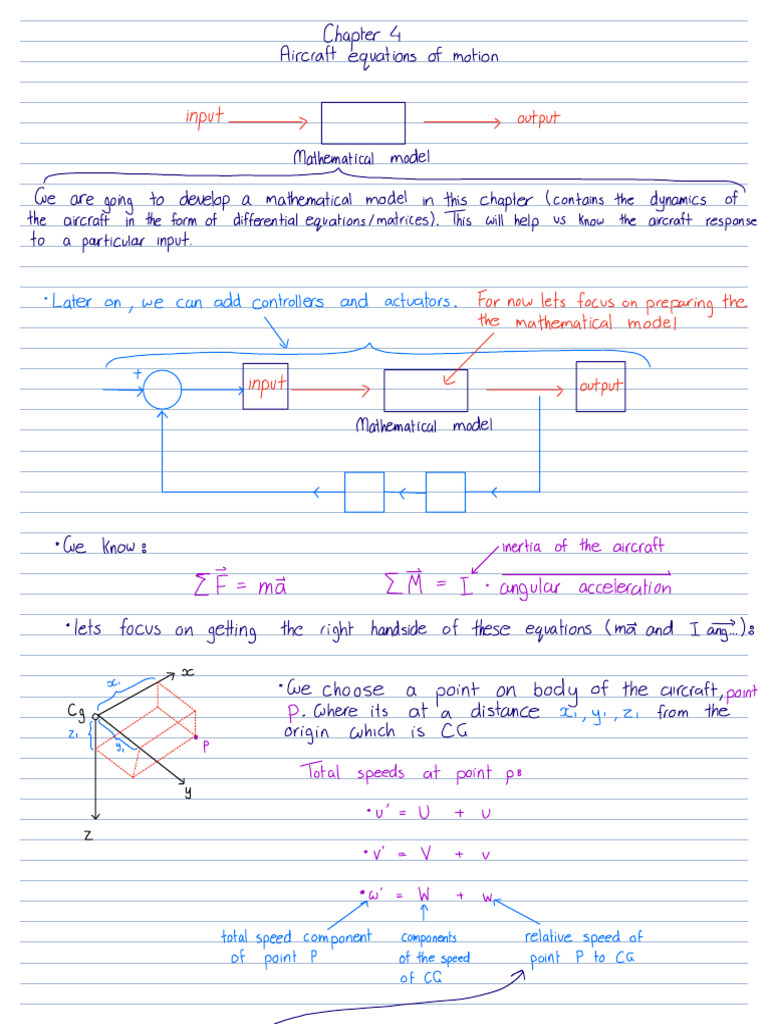 Chapter 4
Aircraft equations of motion
input
output
Mathematical model
We are going to develop a mathematical model in this chapter (contains the dynamics of
the aircraft in the form of differential equations/matrices). This will help us know the aircraft response
to a particular input.
•Later on, we can add controllers and actuators. For now lets focus on preparing the
the mathematical model
+
input
output
Mathematical model
•We know:
inertia of the aircraft
∑F⃗ = ma⃗
∑M⃗ = I · angular acceleration
•lets focus on getting the right handside of these equations (ma⃗ and I ang...):
x
x₁
Cg
z₁
y₁
P
y
z
•We choose a point on body of the aircraft, point
P. Where its at a distance x₁, y₁, z₁ from the
origin which is CG
Total speeds at point p:
•u' = U + u
•v' = V + v
•w' = W + w
total speed component
of point P
components
of the speed
of CG
relative speed of
point P to CG